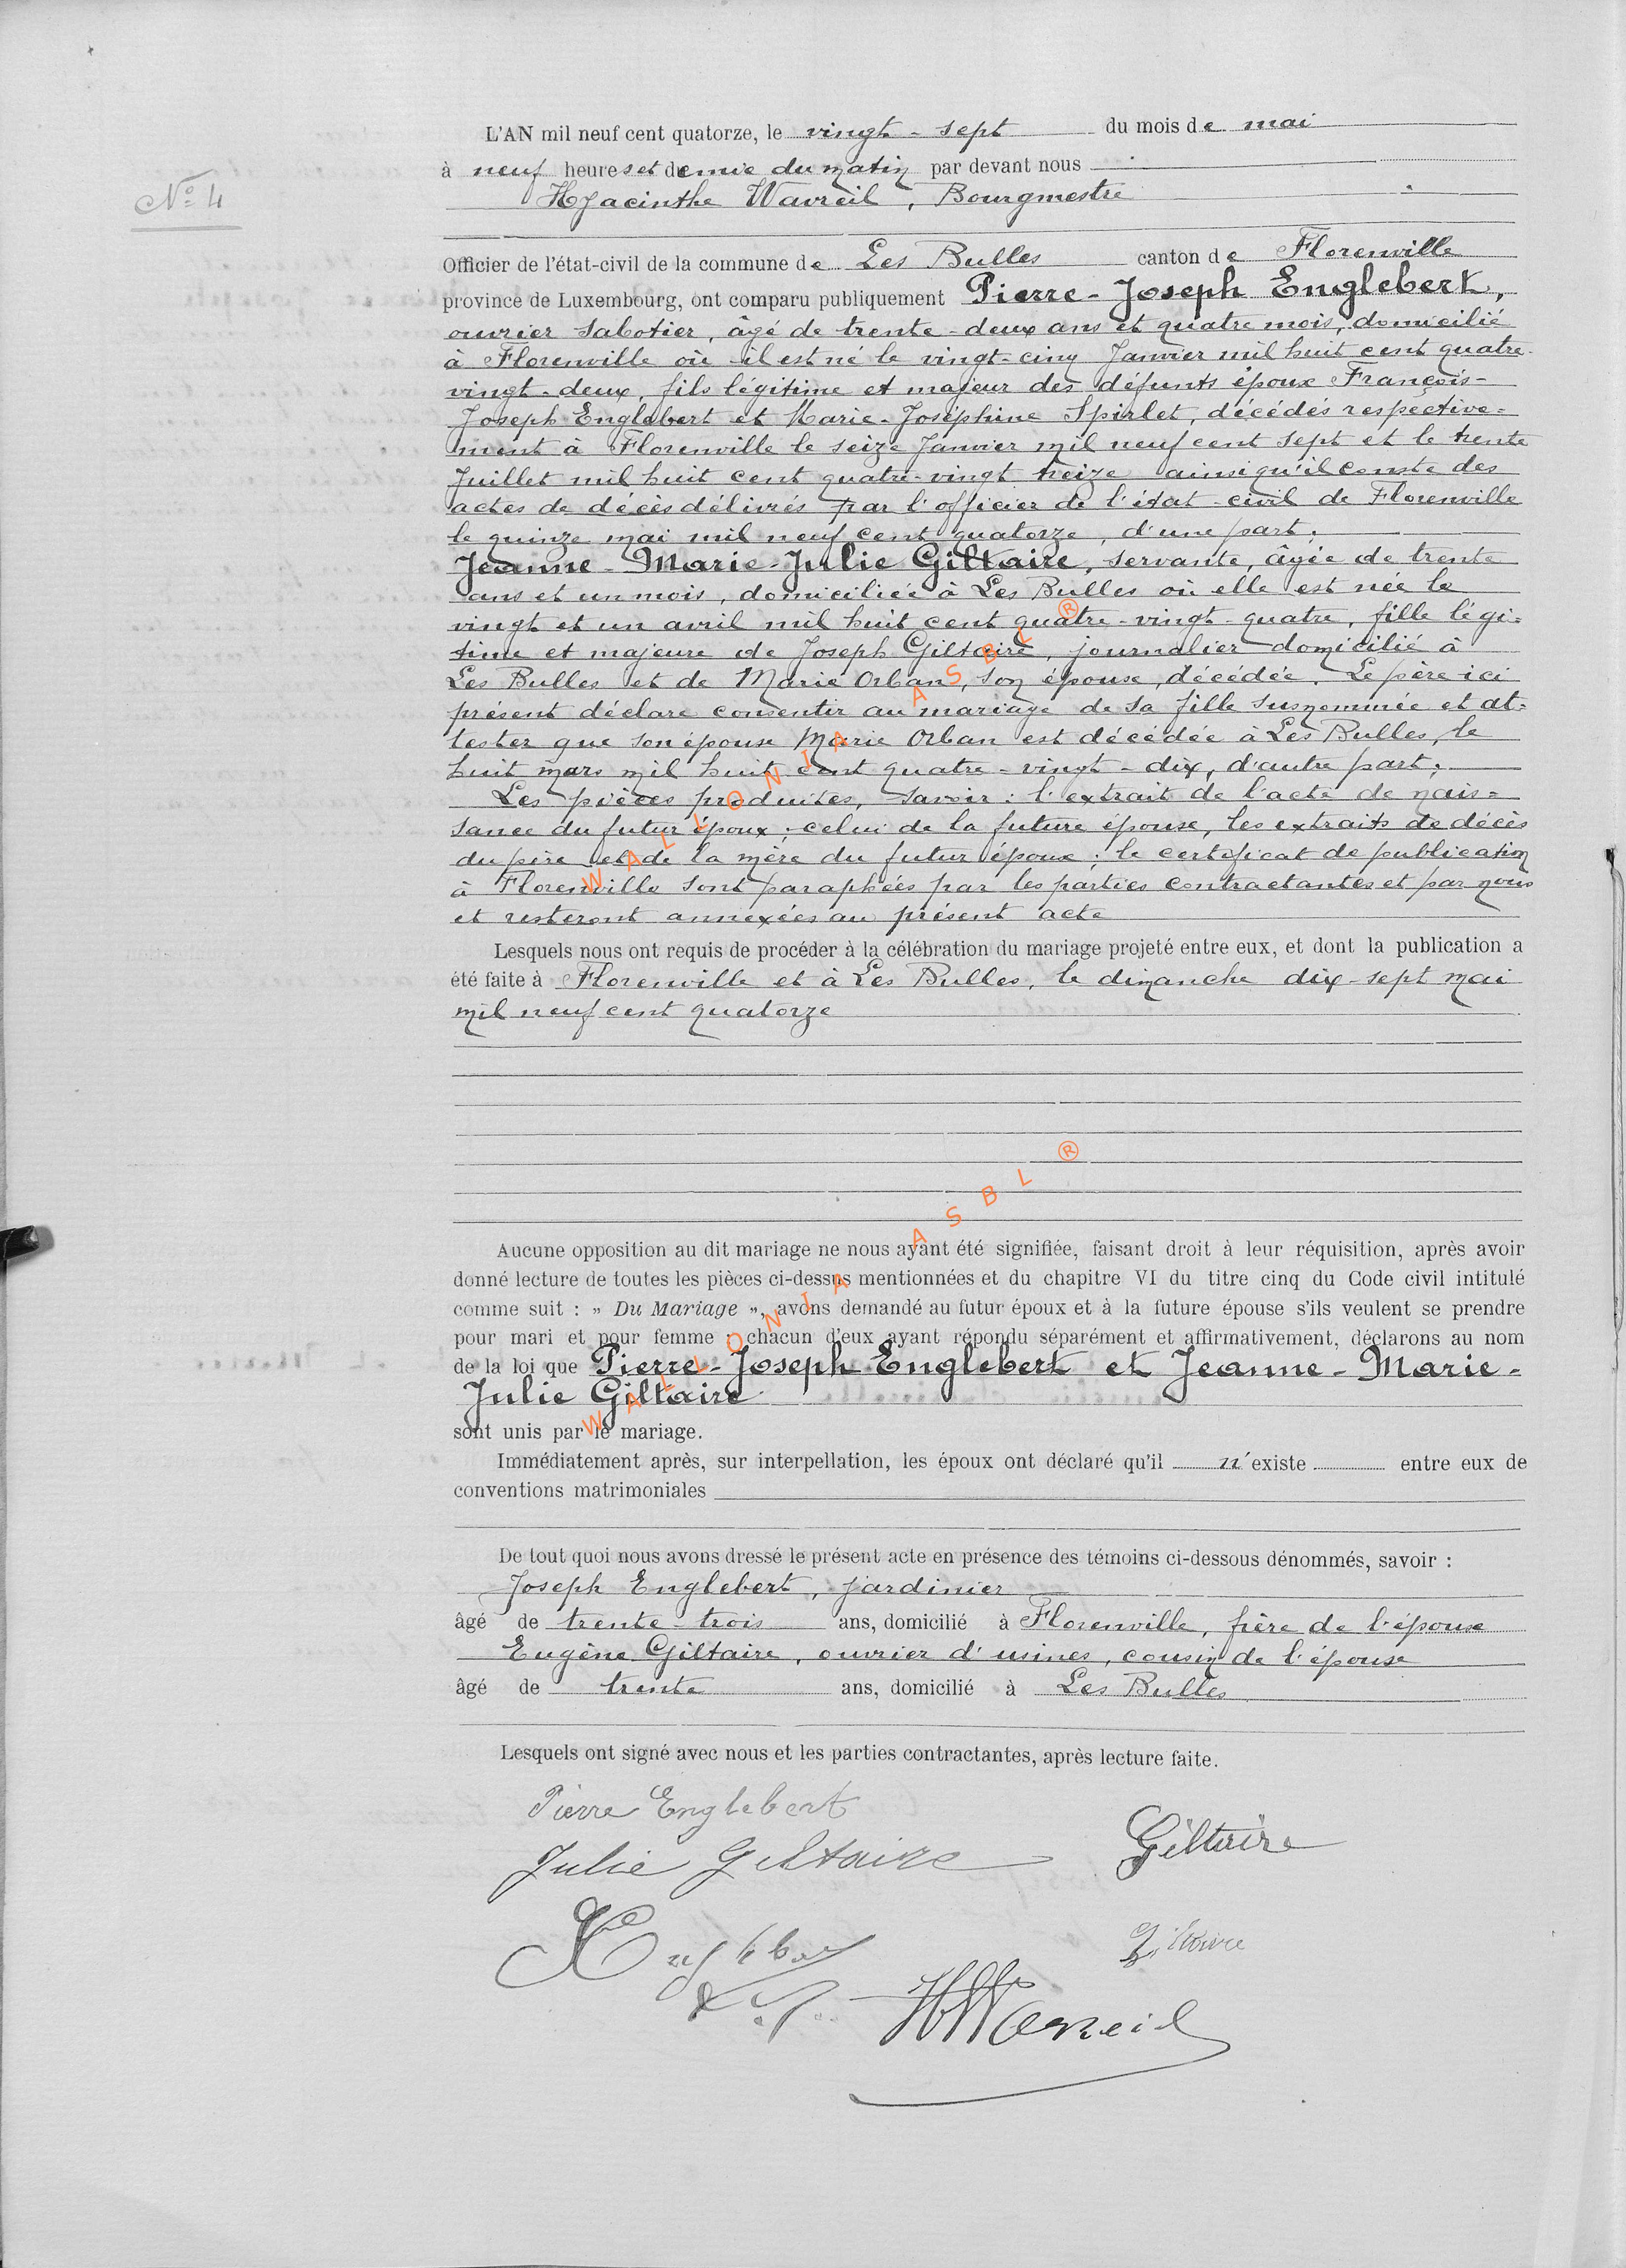 N° 4
L'AN mil neuf cent quatorze, le vingt-sept du mois de mai
à neuf heures et demie du matin par devant nous
Hyacinthe Wavreil, Bourgmestre
Officier de l'état-civil de la commune de Les Bulles canton de Florenville
province de Luxembourg, ont comparu publiquement Pierre-Joseph Englebert,
ouvrier sabotier, âgé de trente-deux ans et quatre mois, domicilié
à Florenville où il est né le vingt-cinq Janvier mil huit cent quatre-
vingt-deux, fils légitime et majeur des défunts époux François-
Joseph Englebert et Marie-Joséphine Spirlet, décédés respective=
ment à Florenville le seize Janvier mil neuf cent sept et le trente
Juillet mil huit cent quatre-vingt treize ainsi qu'il conste des
actes de décès délivrés par l'officier de l'état-civil de Florenville
le quinze mai mil neuf cent quatorze, d'une part;
Jeanne-Marie-Julie Giltaire, servante, âgée de trente
ans et un mois, domiciliée à Les Bulles où elle est née le
vingt et un avril mil huit cent quatre-vingt-quatre, fille légi=
time et majeure de Joseph Giltaire, journalier domicilié à
Les Bulles et de Marie Orban, son épouse, décédée. Le père ici
présent déclare consentir au mariage de sa fille susnommée et at=
tester que son épouse Marie Orban est décédée à Les Bulles, le
huit mars mil huit cent quatre-vingt-dix, d'autre part;
Les pièces produites, savoir: l'extrait de l'acte de nais=
sance du futur époux; celui de la future épouse, les extraits de décès
du père et de la mère du futur époux; le certificat de publication
à Florenville sont paraphées par les parties contractantes et par nous
et resteront annexées au présent acte
Lesquels nous ont requis de procéder à la célébration du mariage projeté entre eux, et dont la publication a
été faite à Florenville et à Les Bulles, le dimanche dix-sept mai
mil neuf cent quatorze
Aucune opposition au dit mariage ne nous ayant été signifiée, faisant droit à leur réquisition, après avoir
donné lecture de toutes les pièces ci-dessus mentionnées et du chapitre VI du titre cinq du Code civil intitulé
comme suit : » Du Mariage », avons demandé au futur époux et à la future épouse s'ils veulent se prendre
pour mari et pour femme ; chacun d'eux ayant répondu séparément et affirmativement, déclarons au nom
de la loi que Pierre-Joseph Englebert et Jeanne-Marie-
Julie Giltaire
sont unis par le mariage.
Immédiatement après, sur interpellation, les époux ont déclaré qu'il n'existe entre eux de
conventions matrimoniales
De tout quoi nous avons dressé le présent acte en présence des témoins ci-dessous dénommés, savoir :
Joseph Englebert, jardinier
âgé de trente-trois ans, domicilié à Florenville, frère de l'épouse
Eugène Giltaire, ouvrier d'usines, cousin de l'épouse
âgé de trente ans, domicilié à Les Bulles
Lesquels ont signé avec nous et les parties contractantes, après lecture faite.
Pierre Englebert
Julie Giltaire
Giltaire
Giltaire
HWavreil
WALLONIA ASBL ®
WALLONIA ASBL ®